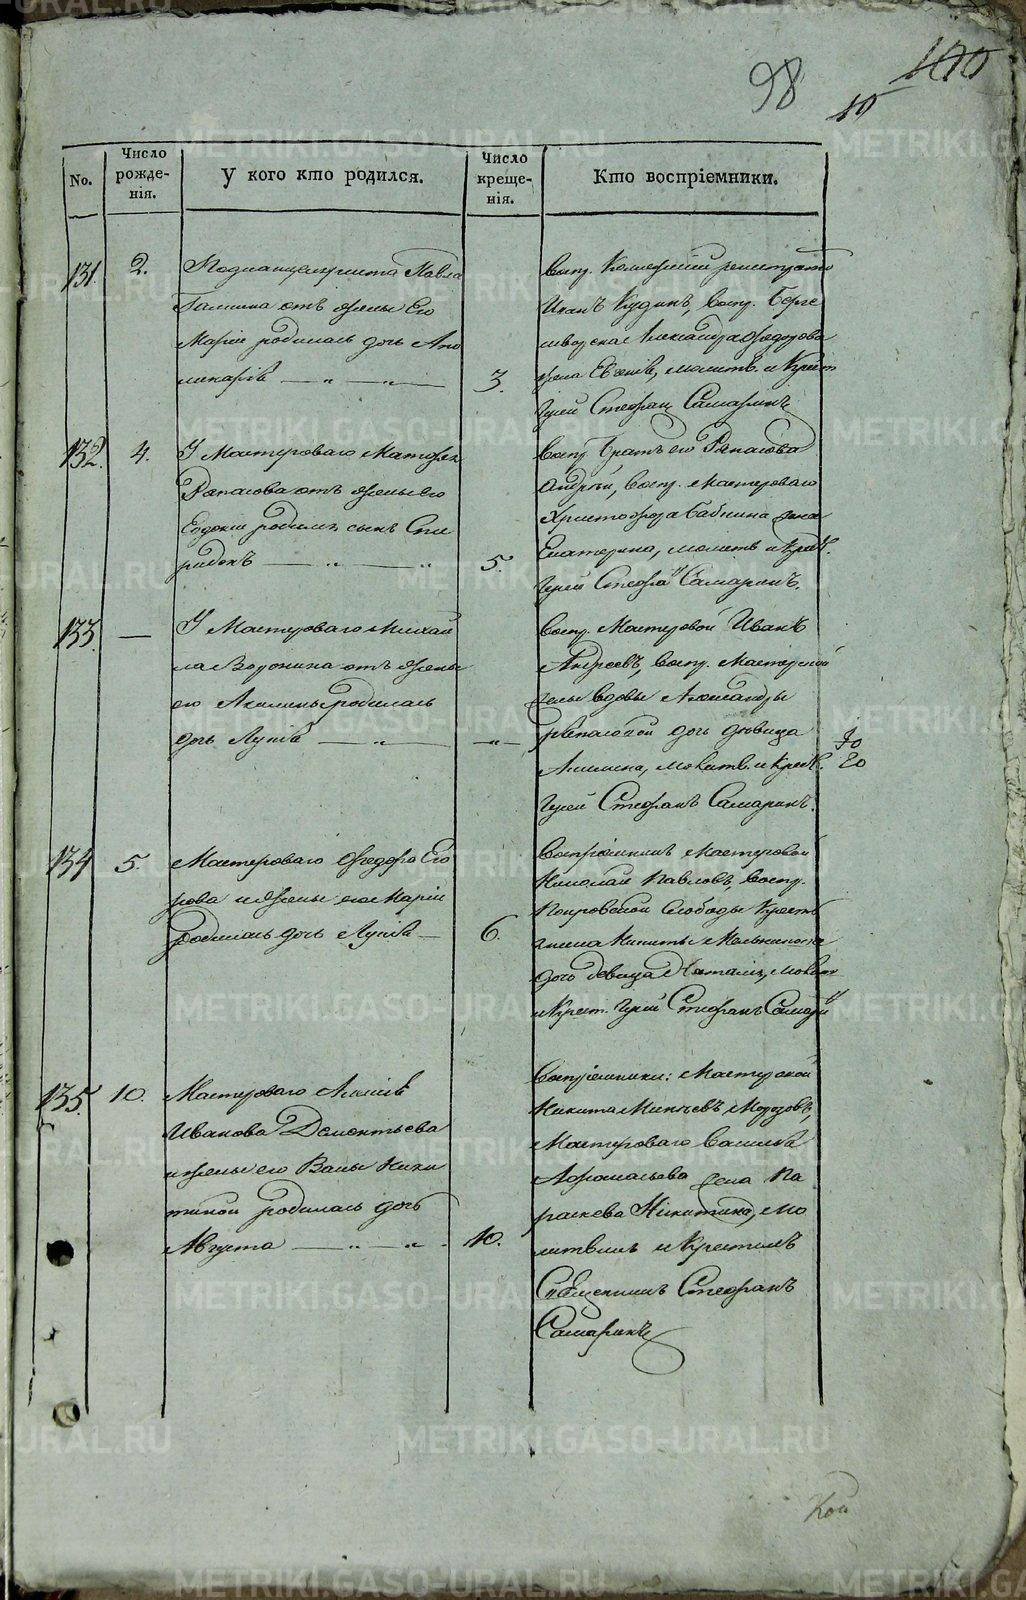 98
100
10
No.
Число рожде-нія.
У кого кто родился.
Число креще-нія.
Кто воспріемники.
131. 2.
Подканцеляриста Павла
Галкина отъ жены Его
Маріи родилась дочь Апо
линарія 3.
Воспр. Коллежскій регистратор
Иванъ, Воспр. Берге
шворска Александра Федорова
жена Евгенія, молитв. и Крест
Іерей Стефан Самаринъ
132. 4.
У Мастероваго
отъ жены его
Евдокіи родился сынъ Спи
ридонъ 5.
Воспр. братъ его
Андрей, Воспр. Мастероваго
Христофора Бабкина жена
Екатерина, молитв и Крест.
Іерей Стефанъ Самаринъ.
133. —
У Мастероваго Михай
ла Воронина отъ жены
его Акилины родилась
дочь Лукія
Воспр. Мастеровой Иванъ
Андреевъ, Воспр. Мастерской
жены вдовы Александры
дочь девица
Акилина, молитв. и Крест.
Іерей Стефанъ Самаринъ.
134 5.
Мастероваго Федора Его
рова и жены его Маріи
родилась дочь Лукія 6.
Воспріемникъ Мастеровой
Николай Павловъ, Воспр.
Покровской Слободы Крестья
нина Никиты
дочь девица Наталья, молит
и Крест. Іерей Стефанъ Самарин
135. 10.
Мастероваго Алексія
Иванова Дементьева
и жены его Вассы Ники
тиной родилась дочь
Августа 10.
Воспріемники: Мастерской
Никита Морозовъ,
Мастероваго Василія
Афонасьева жена Па
раскева Никитина, мо
литвилъ и Крестилъ
Священникъ Стефанъ
Самаринъ
METRIKI.GASO-URAL.RU